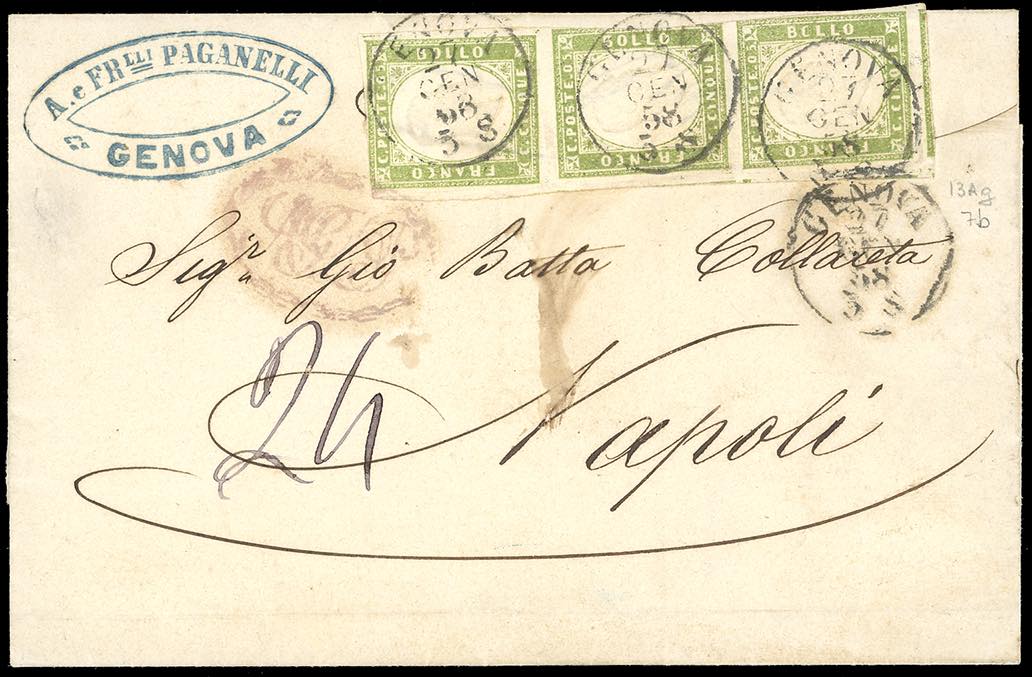 A. e FR.LLI PAGANELLI
GENOVA
BOLLO
C. POSTE. C5
C. CINQUE
FRANCO
GENOVA
GEN
58
5 S
BOLLO
C. POSTE. C5
C. CINQUE
FRANCO
GENOVA
GEN
58
BOLLO
C. POSTE. C5
C. CINQUE
FRANCO
GENOVA
21
GEN
GENOVA
13Ag
7b
Sig.r Gio Batta Collareta
24
Napoli